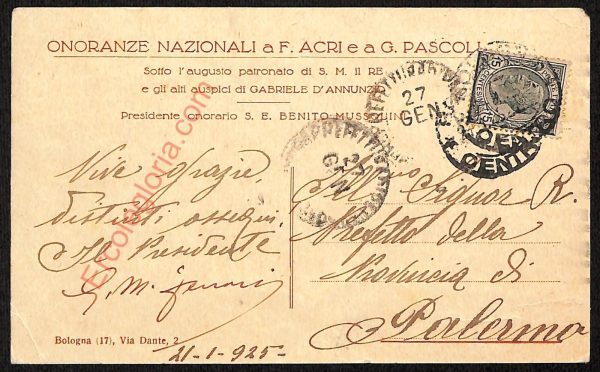 ONORANZE NAZIONALI a F. ACRI e a G. PASCOLI
Sotto l'augusto patronato di S. M. il RE
e gli alti auspici di GABRIELE D'ANNUNZIO
Presidente onorario S. E. BENITO MUSSOLINI
27
GEN
Vive grazie,
distinti ossequi.
Il Presidente
G. M.
Bologna (17), Via Dante, 2
21-1-925-
Ill.mo Signor R.
Prefetto della
Provincia di
Palermo
Ercolegloria.com